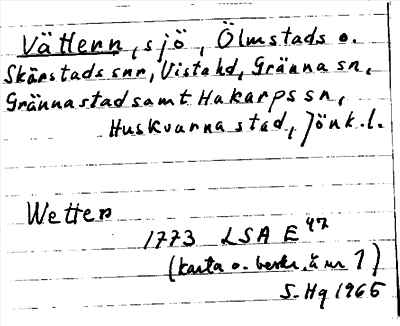 Vättern, sjö, Ölmstads o.
Skärstads snr, Vista hd, Gränna sn,
Gränna stad samt Hakarps sn,
Huskvarna stad, Jönk. l.
Wetter
1773 LSA E 47
(karta o. beskr. å nr 1)
S. Hg 1965